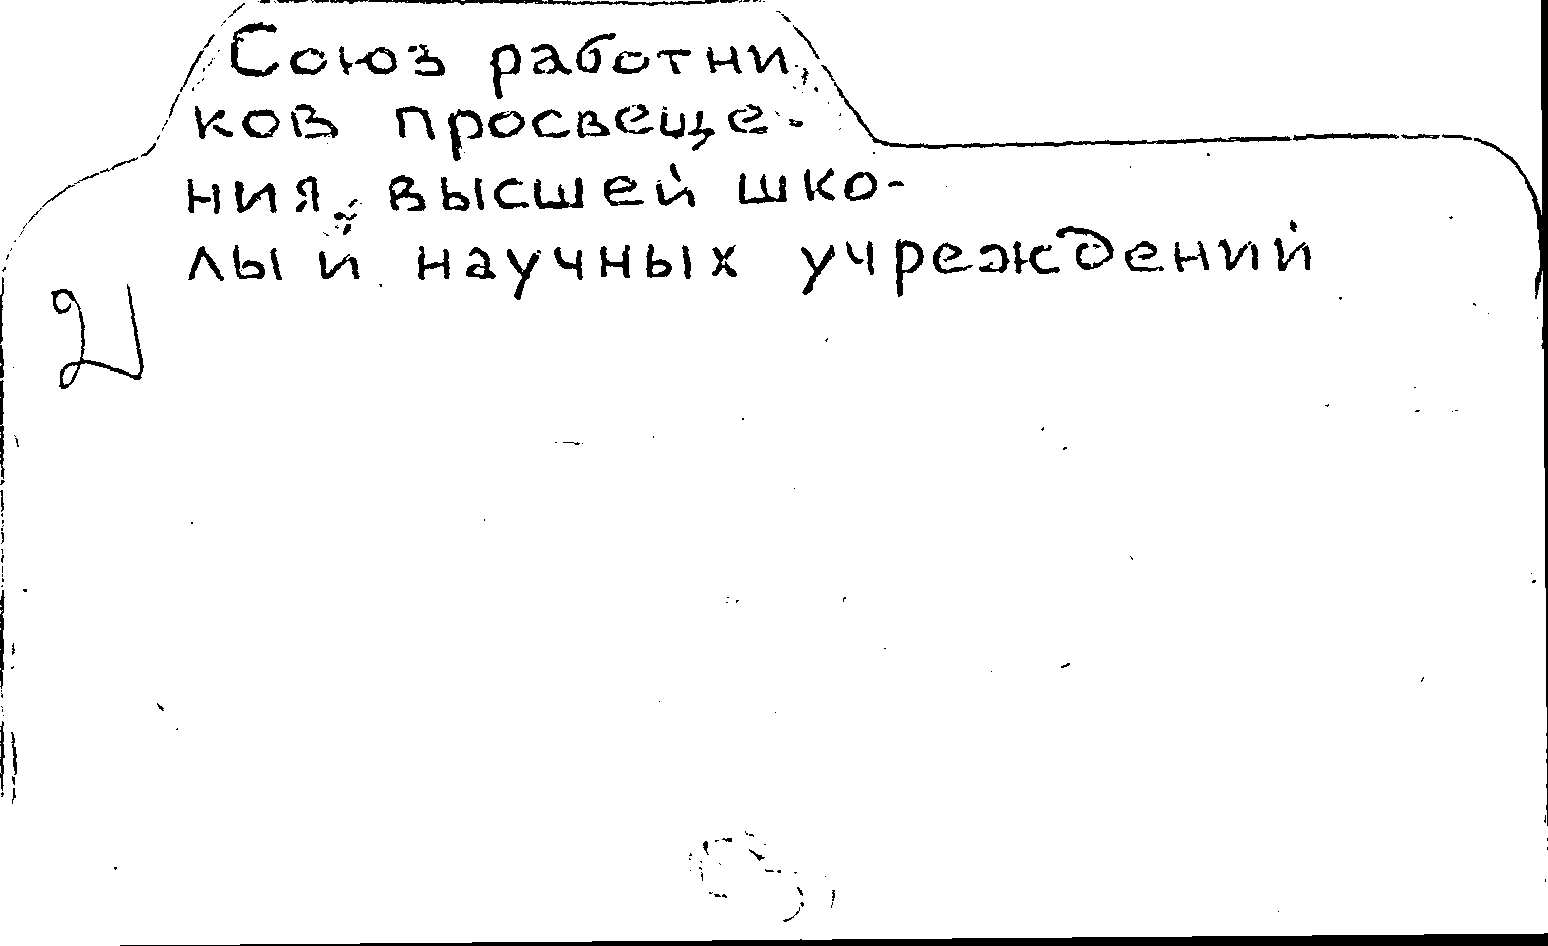 Союз работни
ков просвеще-
ния, высшей шко-
лы и научных учреждений